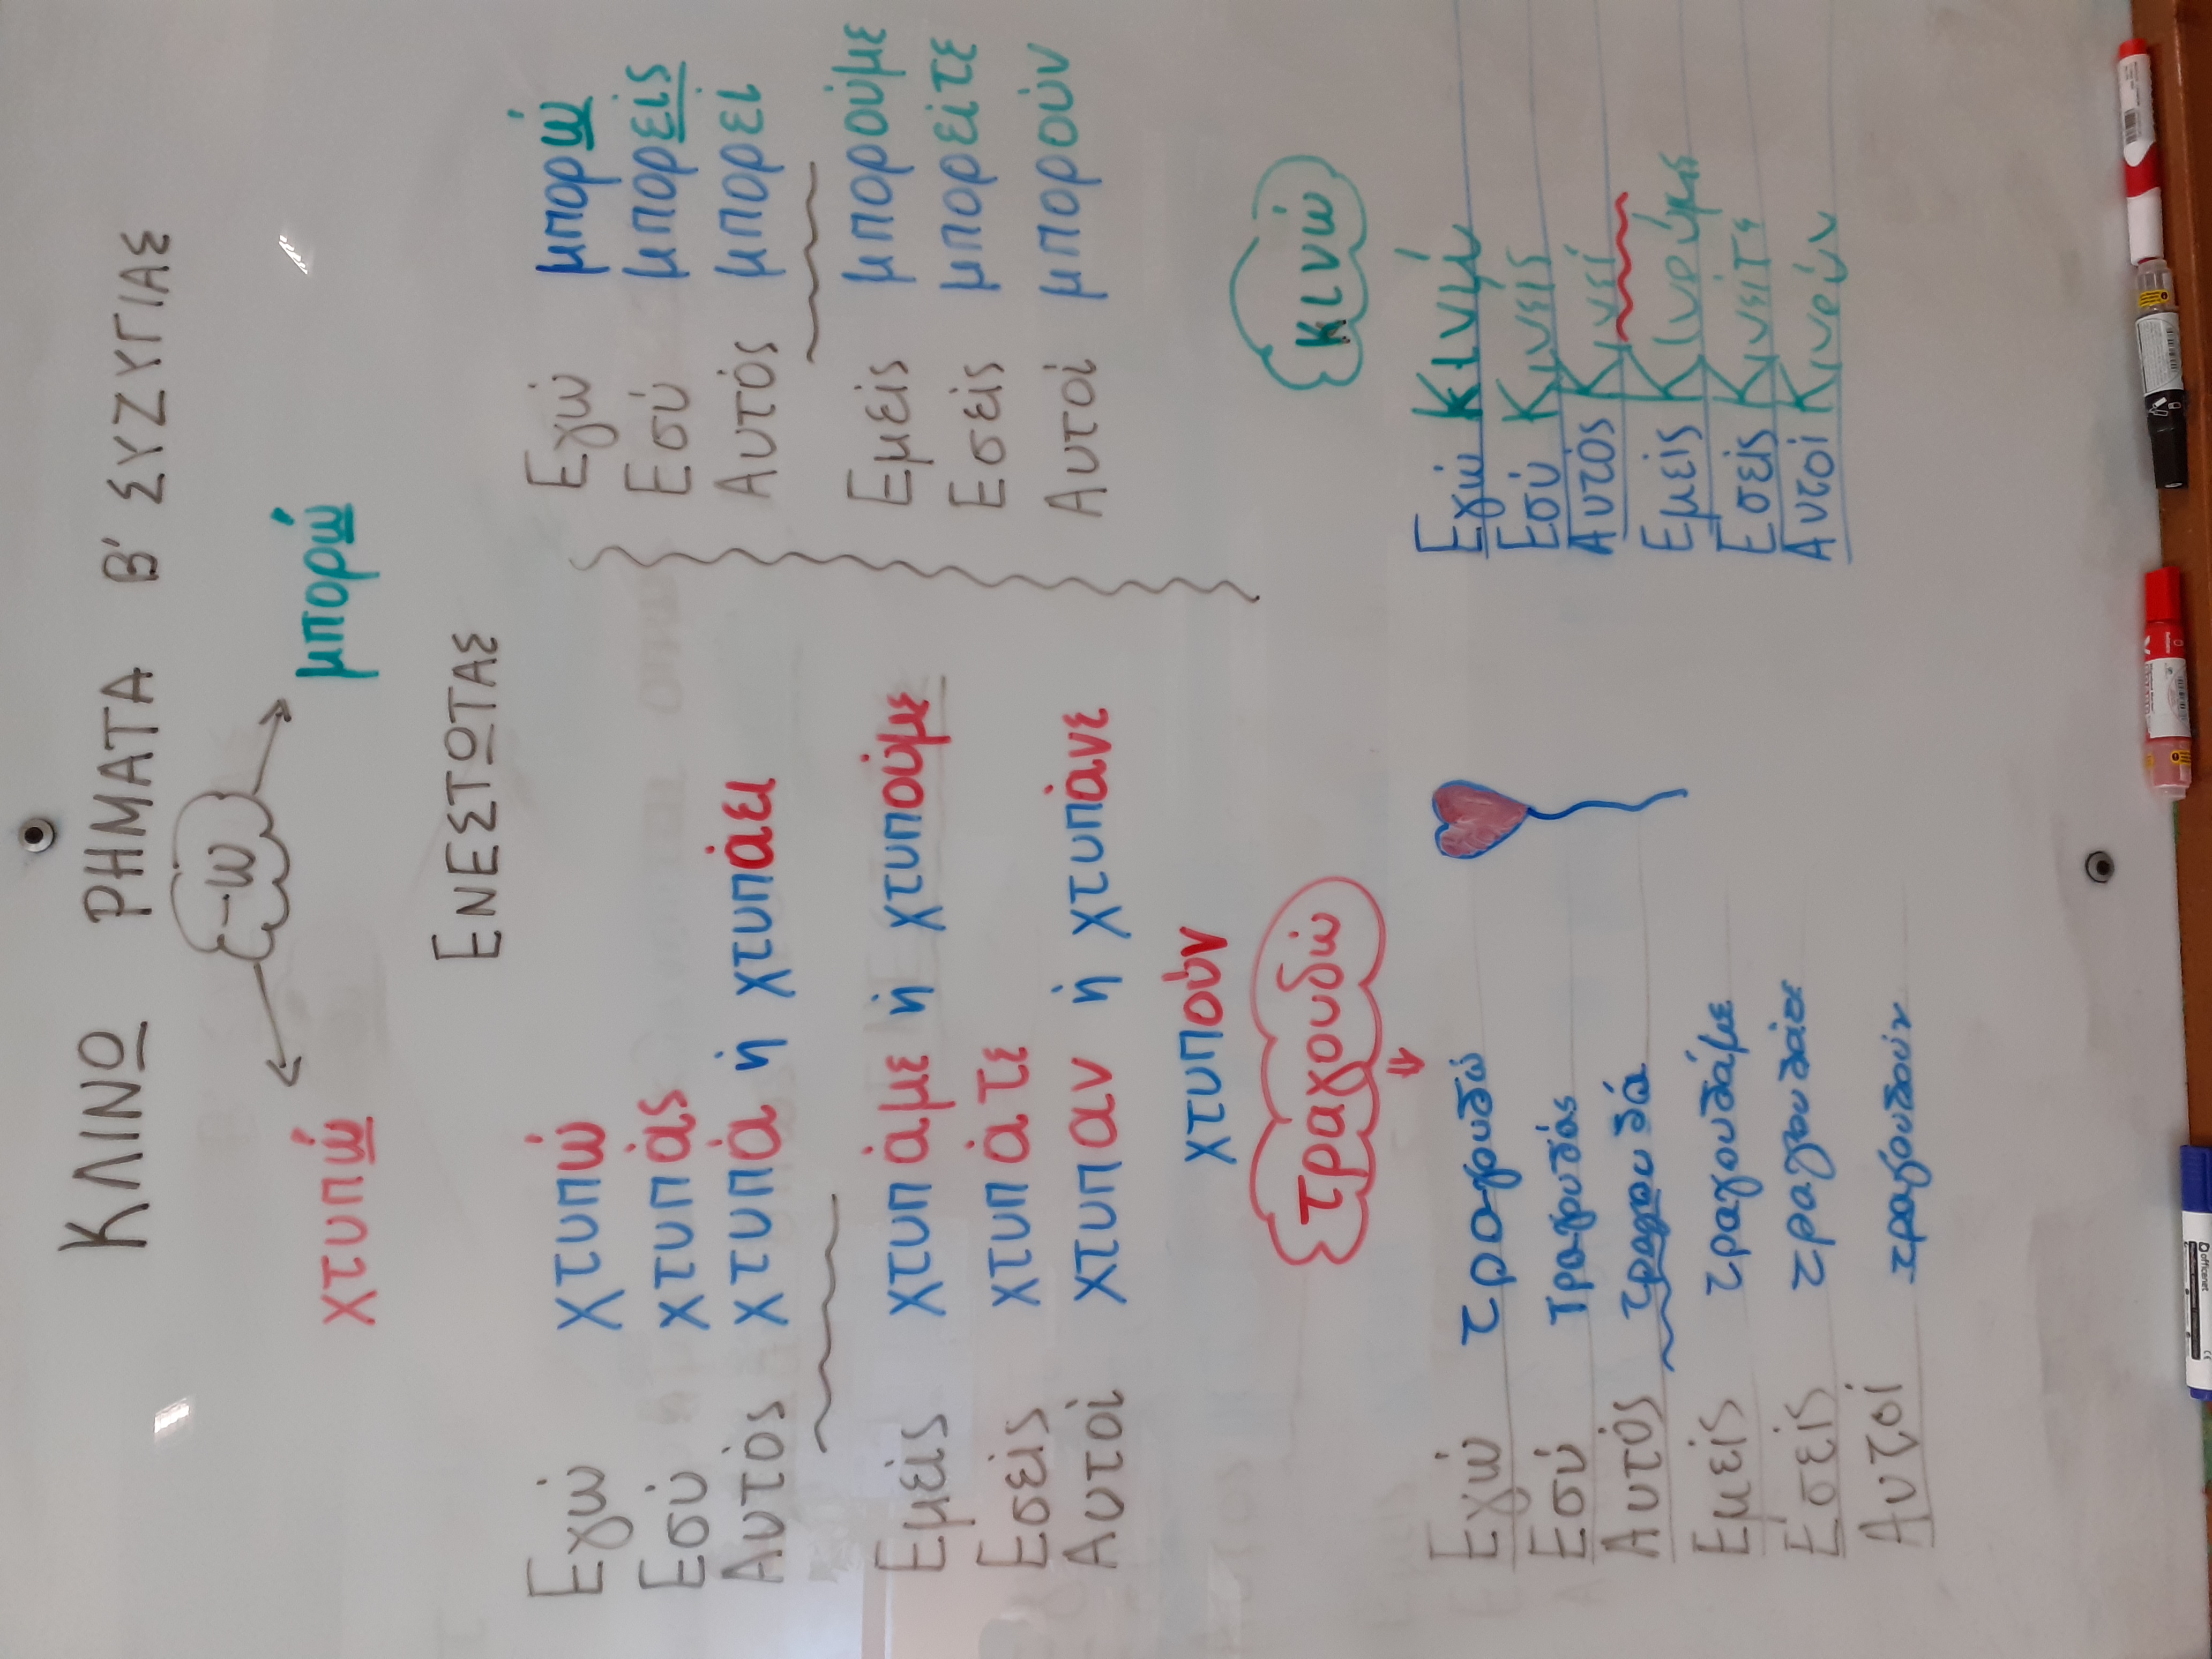 ΚΛΙΝΩ ΡΗΜΑΤΑ Β' ΣΥΖΥΓΙΑΣ
-ώ
χτυπώ
μπορώ
ΕΝΕΣΤΩΤΑΣ
Εγώ χτυπώ
Εσύ χτυπάς
Αυτός χτυπά ή χτυπάει
Εμείς χτυπάμε ή χτυπούμε
Εσείς χτυπάτε
Αυτοί χτυπαν ή χτυπάνε
χτυπούν
Εγώ μπορώ
Εσύ μπορείς
Αυτός μπορεί
Εμείς μπορούμε
Εσείς μπορείτε
Αυτοί μπορούν
τραγουδώ
Εγώ τραγουδώ
Εσύ τραγουδάς
Αυτός τραγουδά
Εμείς τραγουδάμε
Εσείς τραγουδάτε
Αυτοί τραγουδούν
κινώ
Εγώ Κινώ
Εσύ Κινείς
Αυτός Κινεί
Εμείς Κινούμε
Εσείς Κινείτε
Αυτοί Κινούν